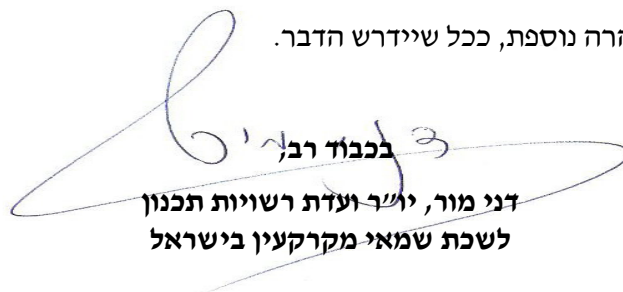 הרה נוספת, ככל שיידרש הדבר.
בכבוד רב,
דני מור, יו״ר ועדת רשויות תכנון
לשכת שמאי מקרקעין בישראל